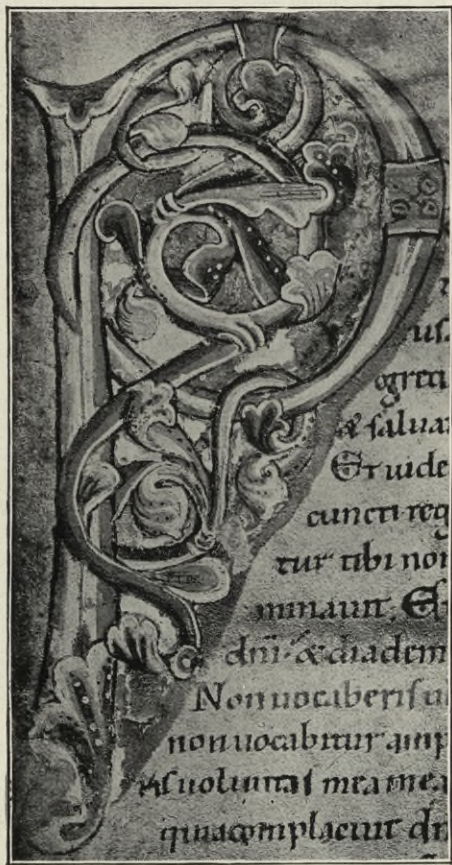 us.
egredi
& salua
Et uide
cuncti reg
tur tibi non
minauit. Et
dni. & diadem
Non uocaberis u
non uocabitur amp
uoluntas mea mea
quia complacuit dn